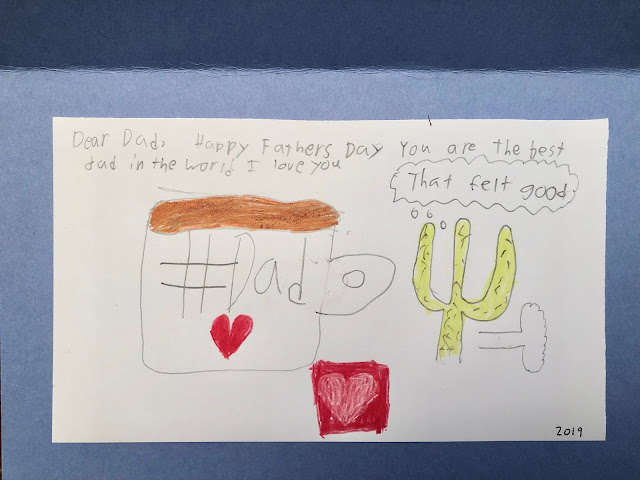 Dear Dad, Happy Fathers Day You are the best
dad in the world I love you
That felt good
#Dad
2019